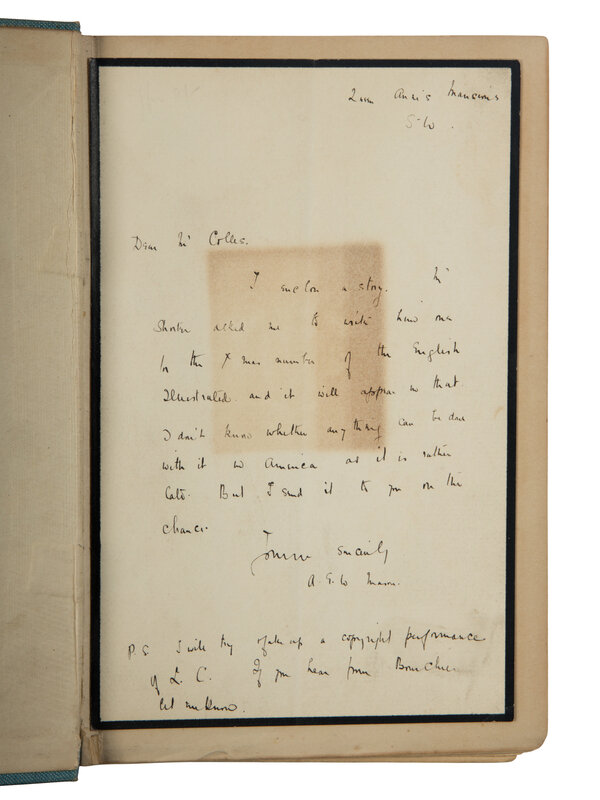 Queen Anne's Mansions
S.W.
Dear Mr Colles.
I enclose a story. Mr
Shorter asked me to write him one
for the Xmas number of the English
Illustrated. and it will appear in that.
I don't know whether anything can be done
with it in America as it is rather
late. But I send it to you on the
chance.
Yours sincerely
A. E. W Mason.
P.S. I will try & fake up a copyright performance
of L. C. If you hear from
let me know.